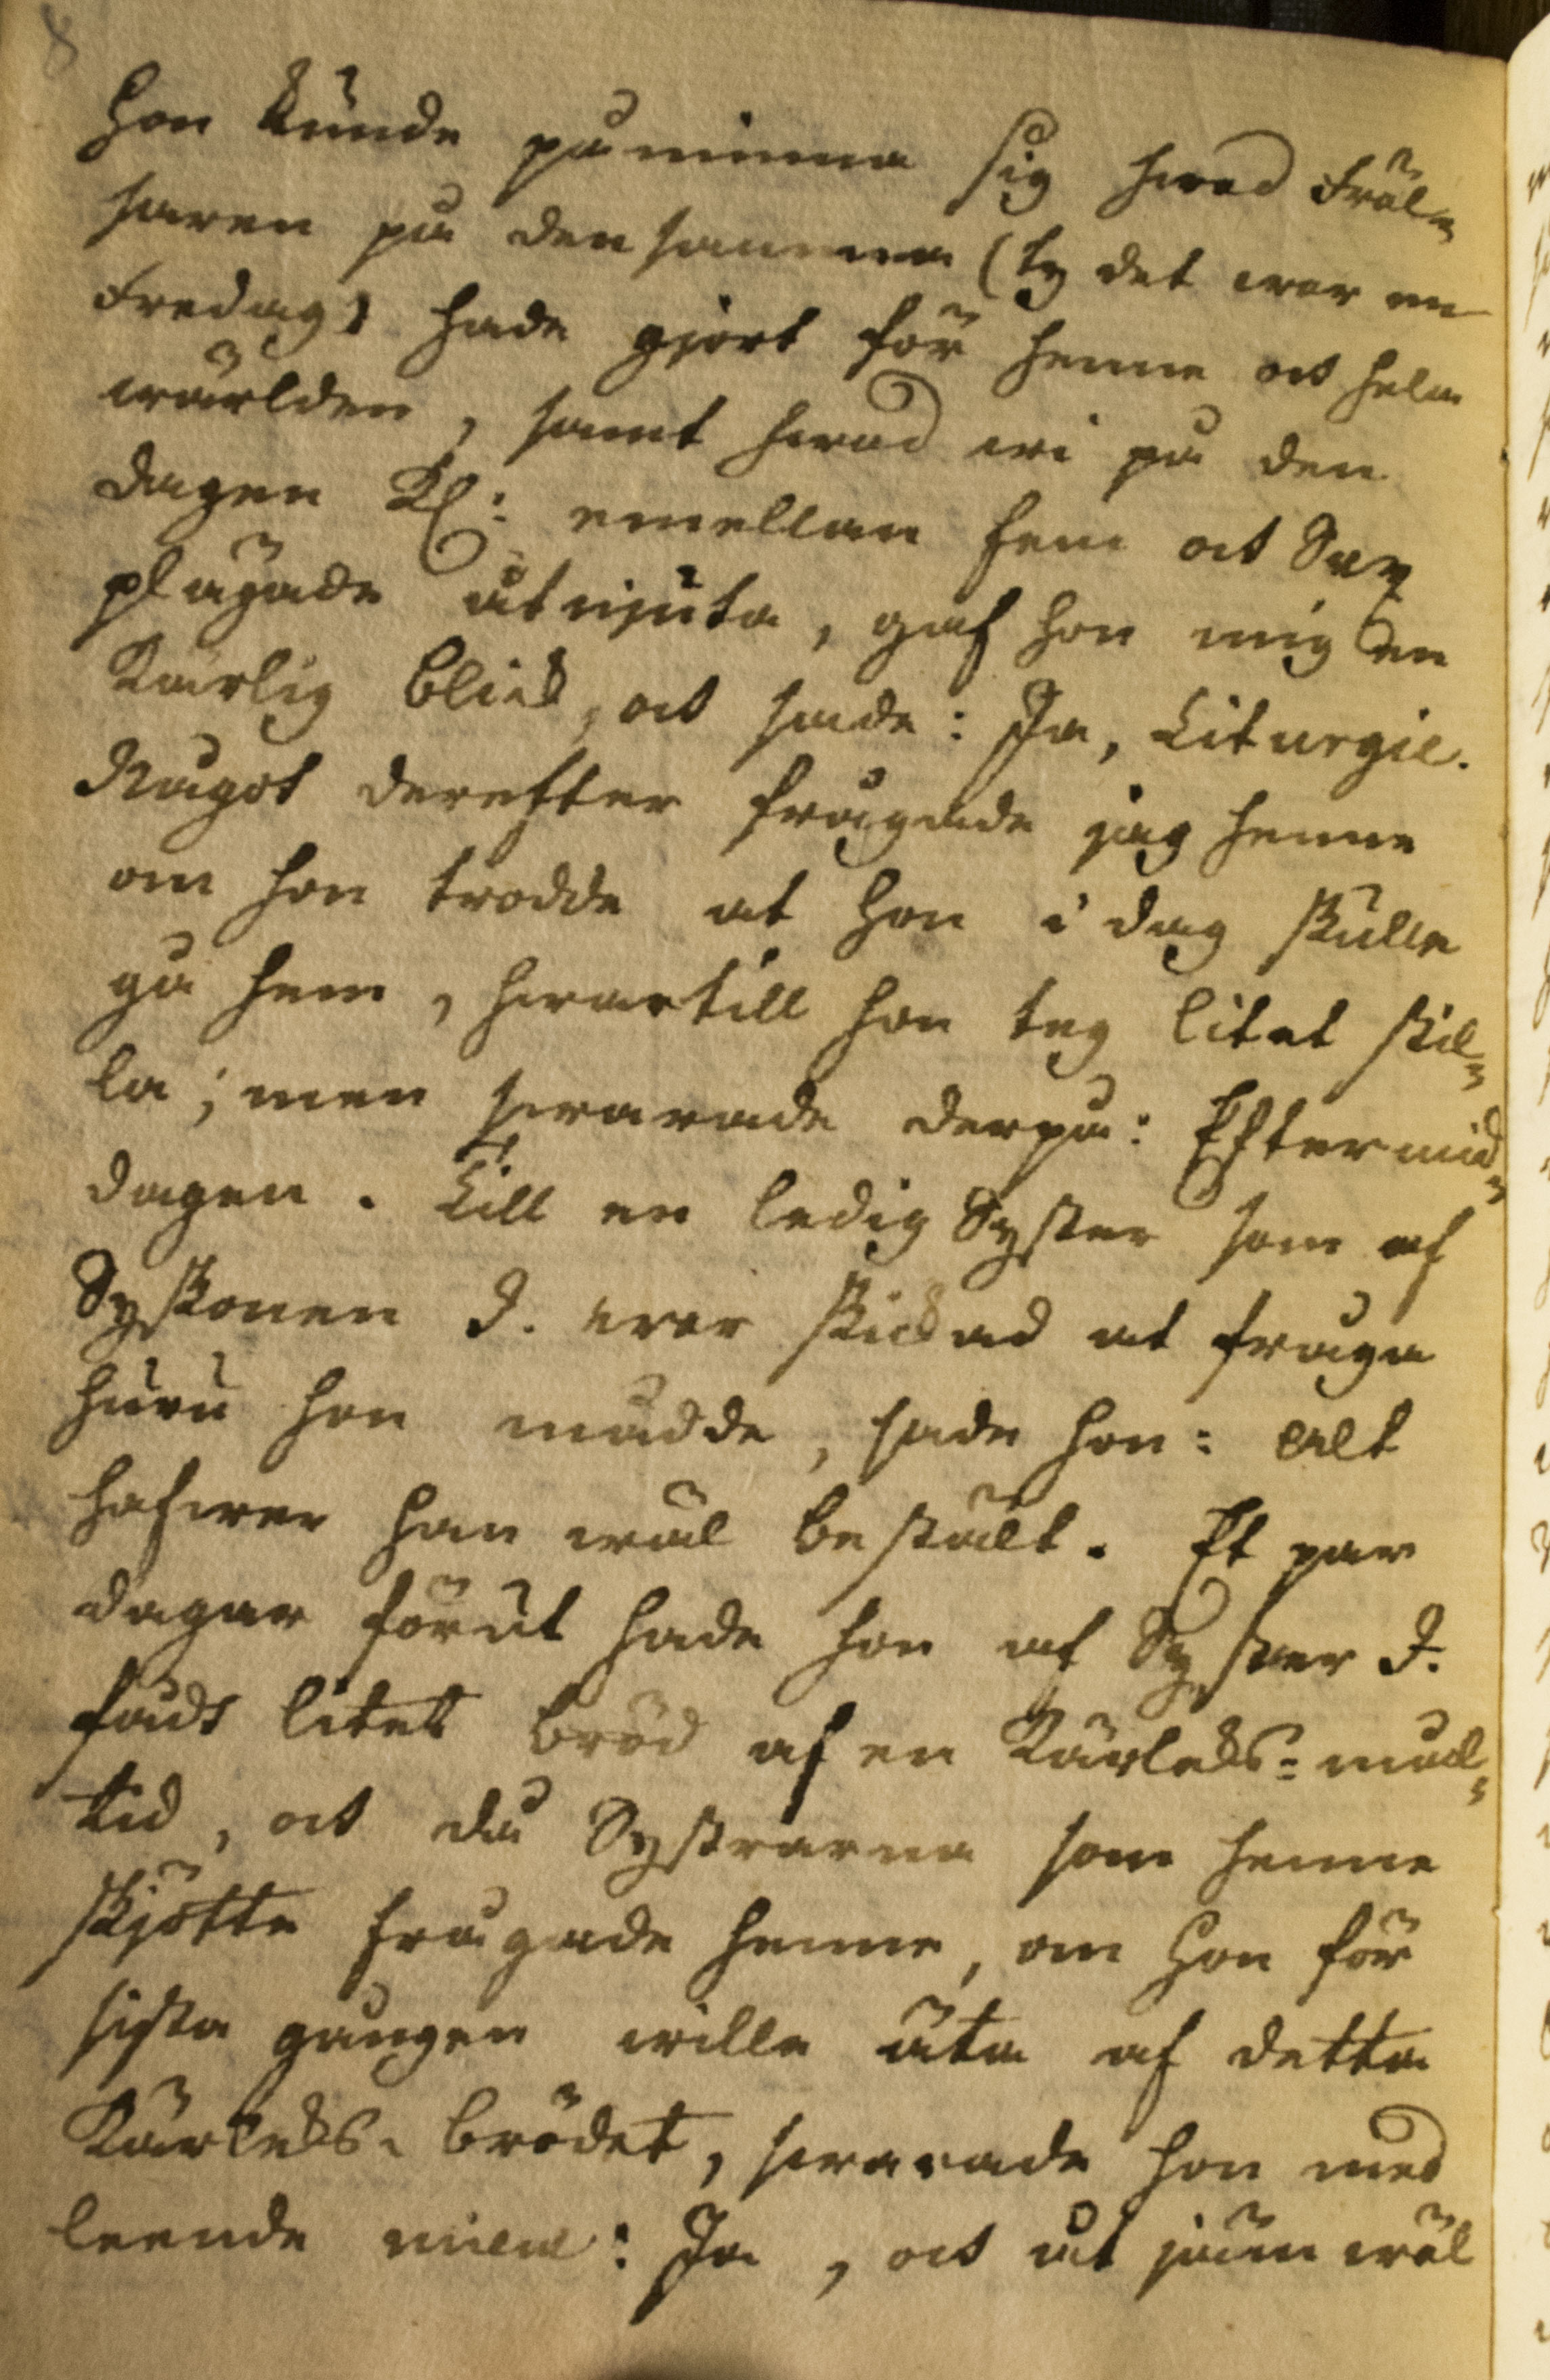 8
Hon kunde påminna sig hwad Fräl=
saren på densamma (ty det war en
Fredag) hade gjort för henne och hela
wärlden, samt hwad wi på den
dagen Kl: emellan fem och Sex
plägade åtnjuta, gaf hon mig en
Kärlig blick, och sade: Ja, Liturgie.
Något derefter frågade jag henne
om hon trodde at hon i dag skulle
gå hem, hwartill hon teg litet stil=
la; men swarade derpå: Eftermid=
dagen. Till en ledig Syster som af
Syskonen I. war skickad at fråga
huru hon mådde, sade hon: Alt
hafwer han wäl bestält. Et par
dagar förut hade hon af Syster I.
fådt litet bröd af en Kärleks=mål=
tid, och då Systrarna som henne
skjötte frågade henne, om hon för
sista gången wille äta af detta
Kärleks=brödet, swarade hon med
leende mine: Ja, och åt jämwäl